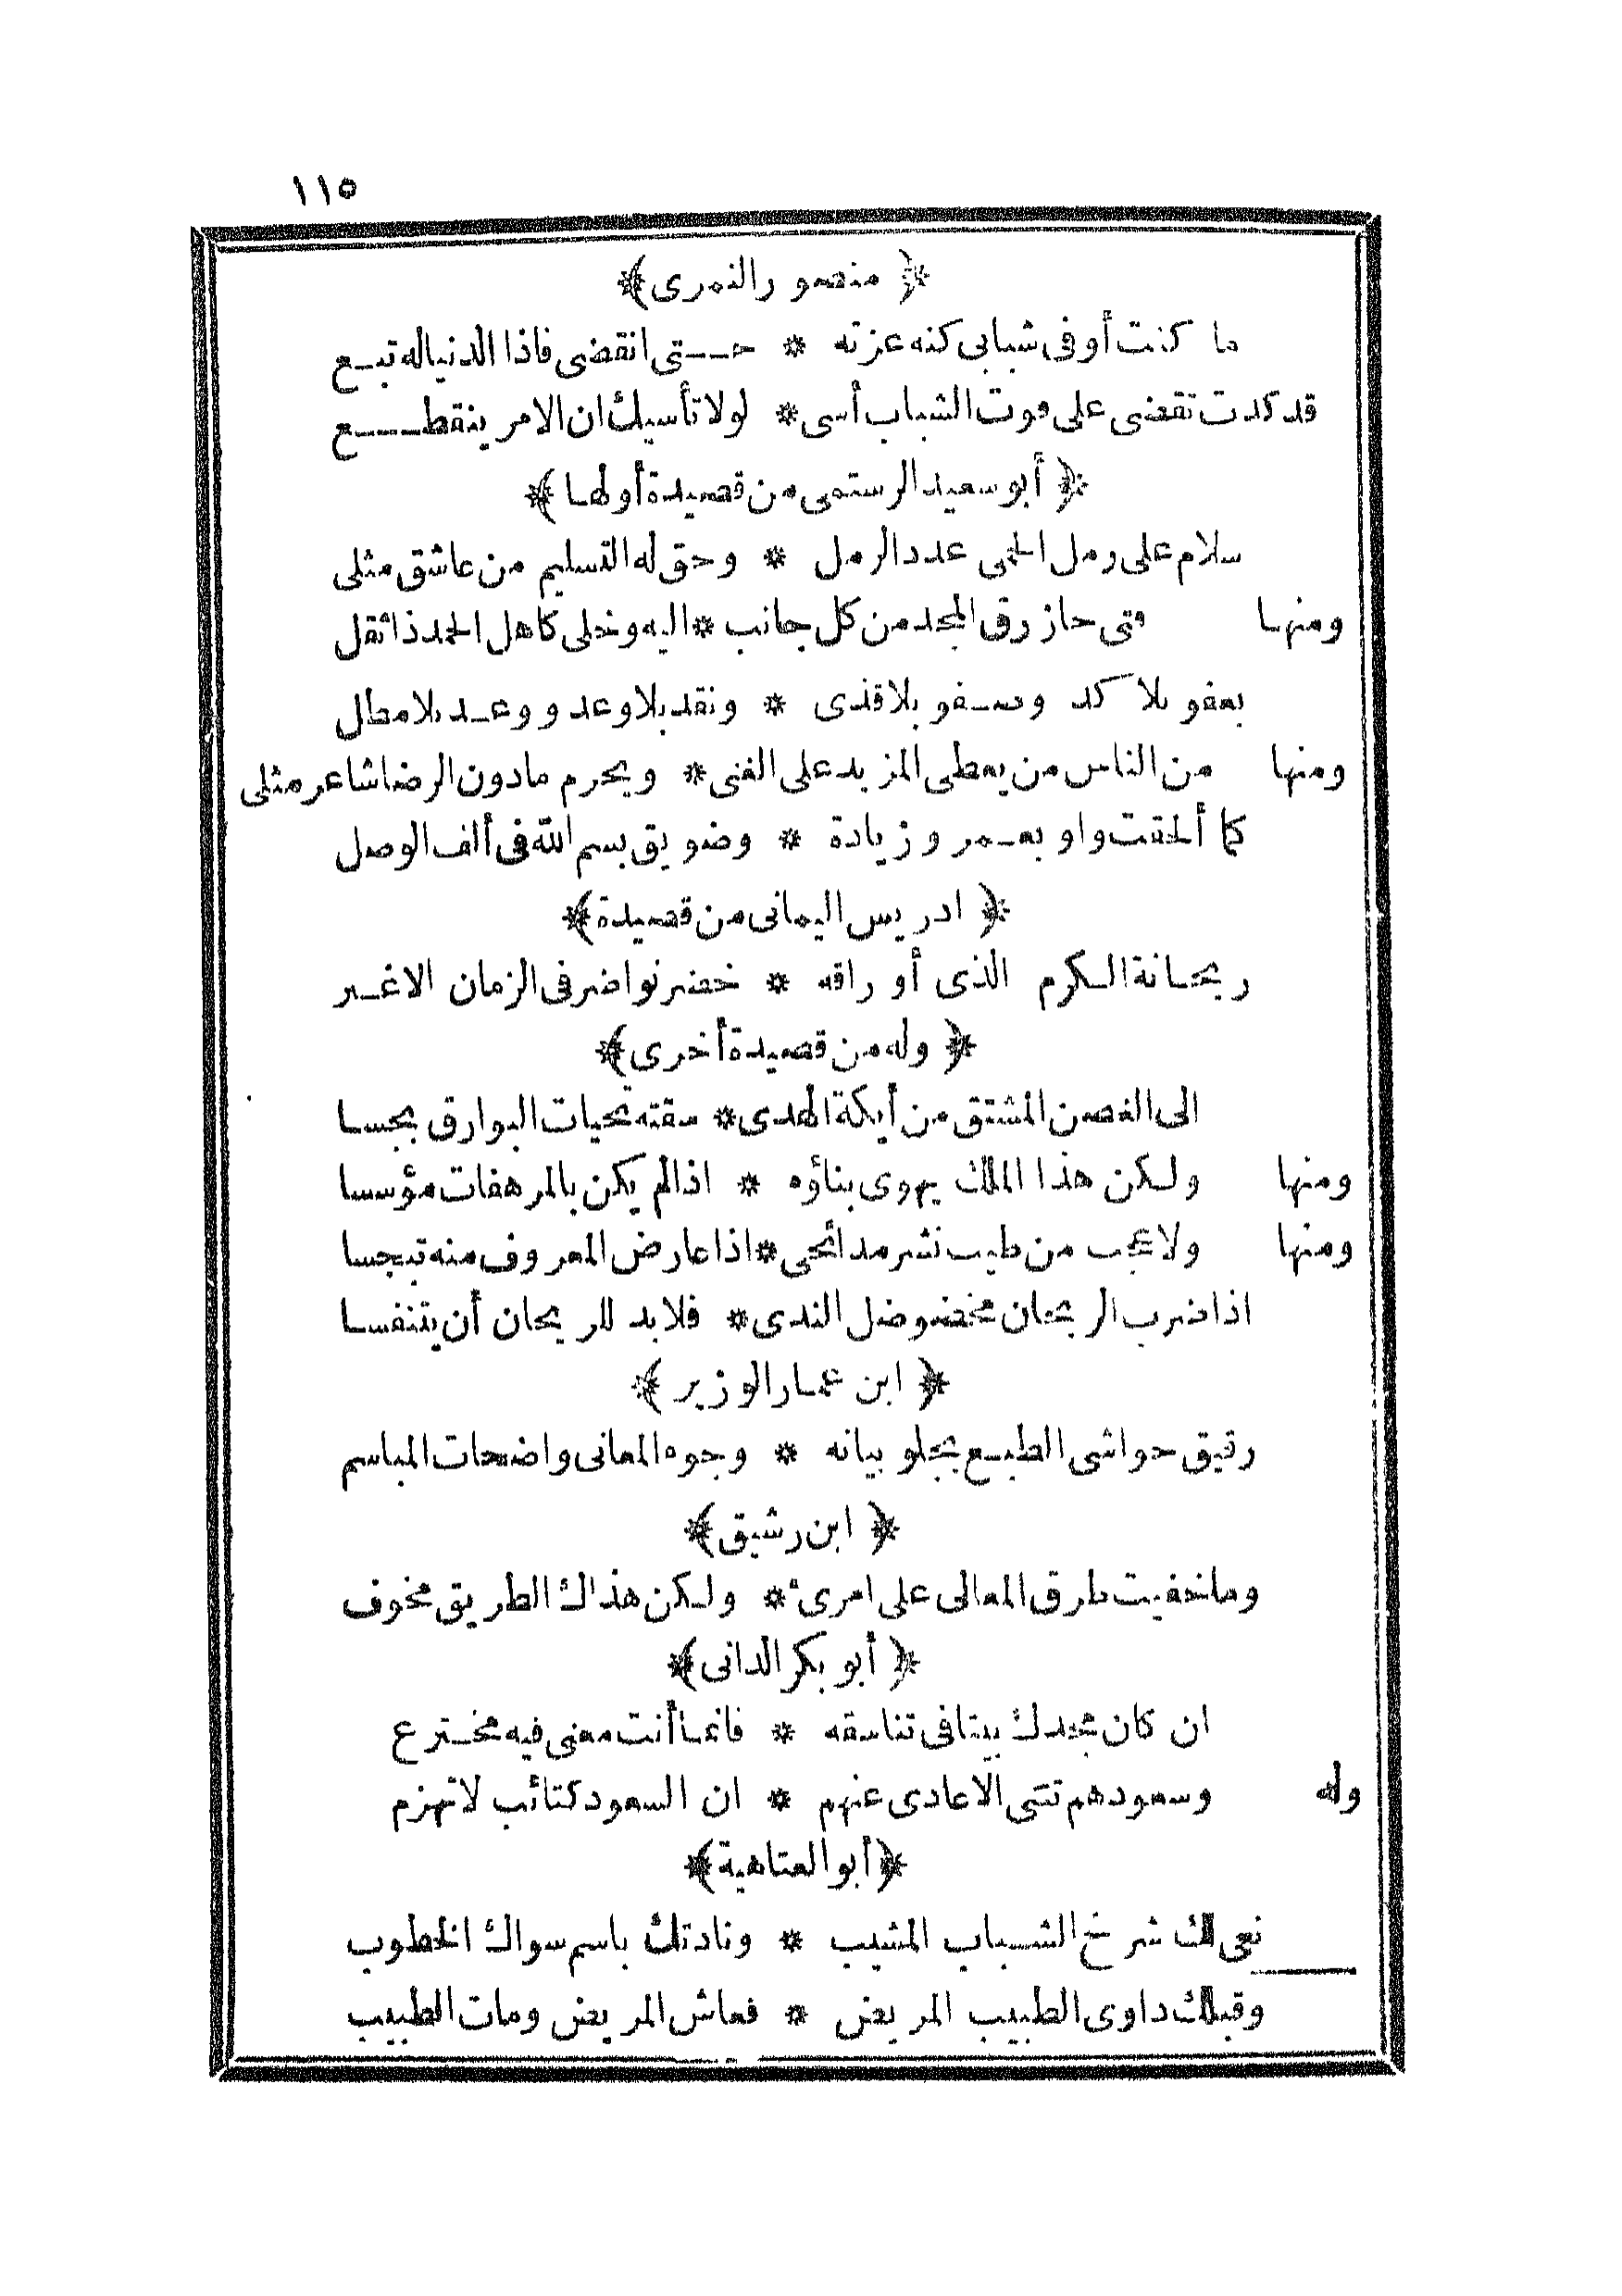 ١١٥
﴿ منصور النمرى ﴾
ما كنت أوفى شبابى كنه عزته * حتى انقضى فاذا الدنيا له تبع
قد كدت تقضى على فوت الشباب أسى * لولا تأسيك ان الامر ينقطع
﴿ أبو سعيد الرستمى من قصيدة أولها ﴾
سلام على رمل الحمى عدد الرمل * وحق له التسليم من عاشق مثلى
ومنها فتى حاز رق المجد من كل جانب * اليه وخلى كاهل الحمد ذا ثقل
بعفو بلا كد وصفو بلا قذى * ونقد بلا وعد ووعد بلا مطل
ومنها من الناس من يعطى المزيد على الغنى * ويحرم مادون الرضا شاعر مثلى
كما ألحقت واو بعمرو زيادة * وضويق بسم الله فى ألف الوصل
﴿ ادريس اليمانى من قصيدة ﴾
ريحانة الكرم الذى أوراقه * خضر نواضر فى الزمان الاغبر
﴿ وله من قصيدة أخرى ﴾
الى الغصن المشتق من أيكة الهدى * سقته تحيات البوارق بجسا
ومنها ولكن هذا الملك يهوى بناؤه * اذا لم يكن بالمرهفات مؤسسا
ومنها ولا عجب من طيب نشر مدائحى * اذا عارض المعروف منه تبجسا
اذا ضرب الريحان مخضوضل الندى * فلا بد للريحان أن يتنفسا
﴿ ابن عمار الوزير ﴾
رقيق حواشى الطبع يجلو بيانه * وجوه المعانى واضحات المباسم
﴿ ابن رشيق ﴾
وما خفيت طرق المعالى على امرئ * ولكن هذاك الطريق مخوف
﴿ أبو بكر الدانى ﴾
ان كان مجدك بيتا فى تناسقه * فانما أنت معنى فيه مخترع
وله وسعودهم تثنى الاعادى عنهم * ان السعود كتائب لا تهزم
﴿ أبو العتاهية ﴾
نعى لك شرخ الشباب المشيب * ونادتك باسم سواك الخطوب
وقبلك داوى الطبيب المريض * فعاش المريض ومات الطبيب